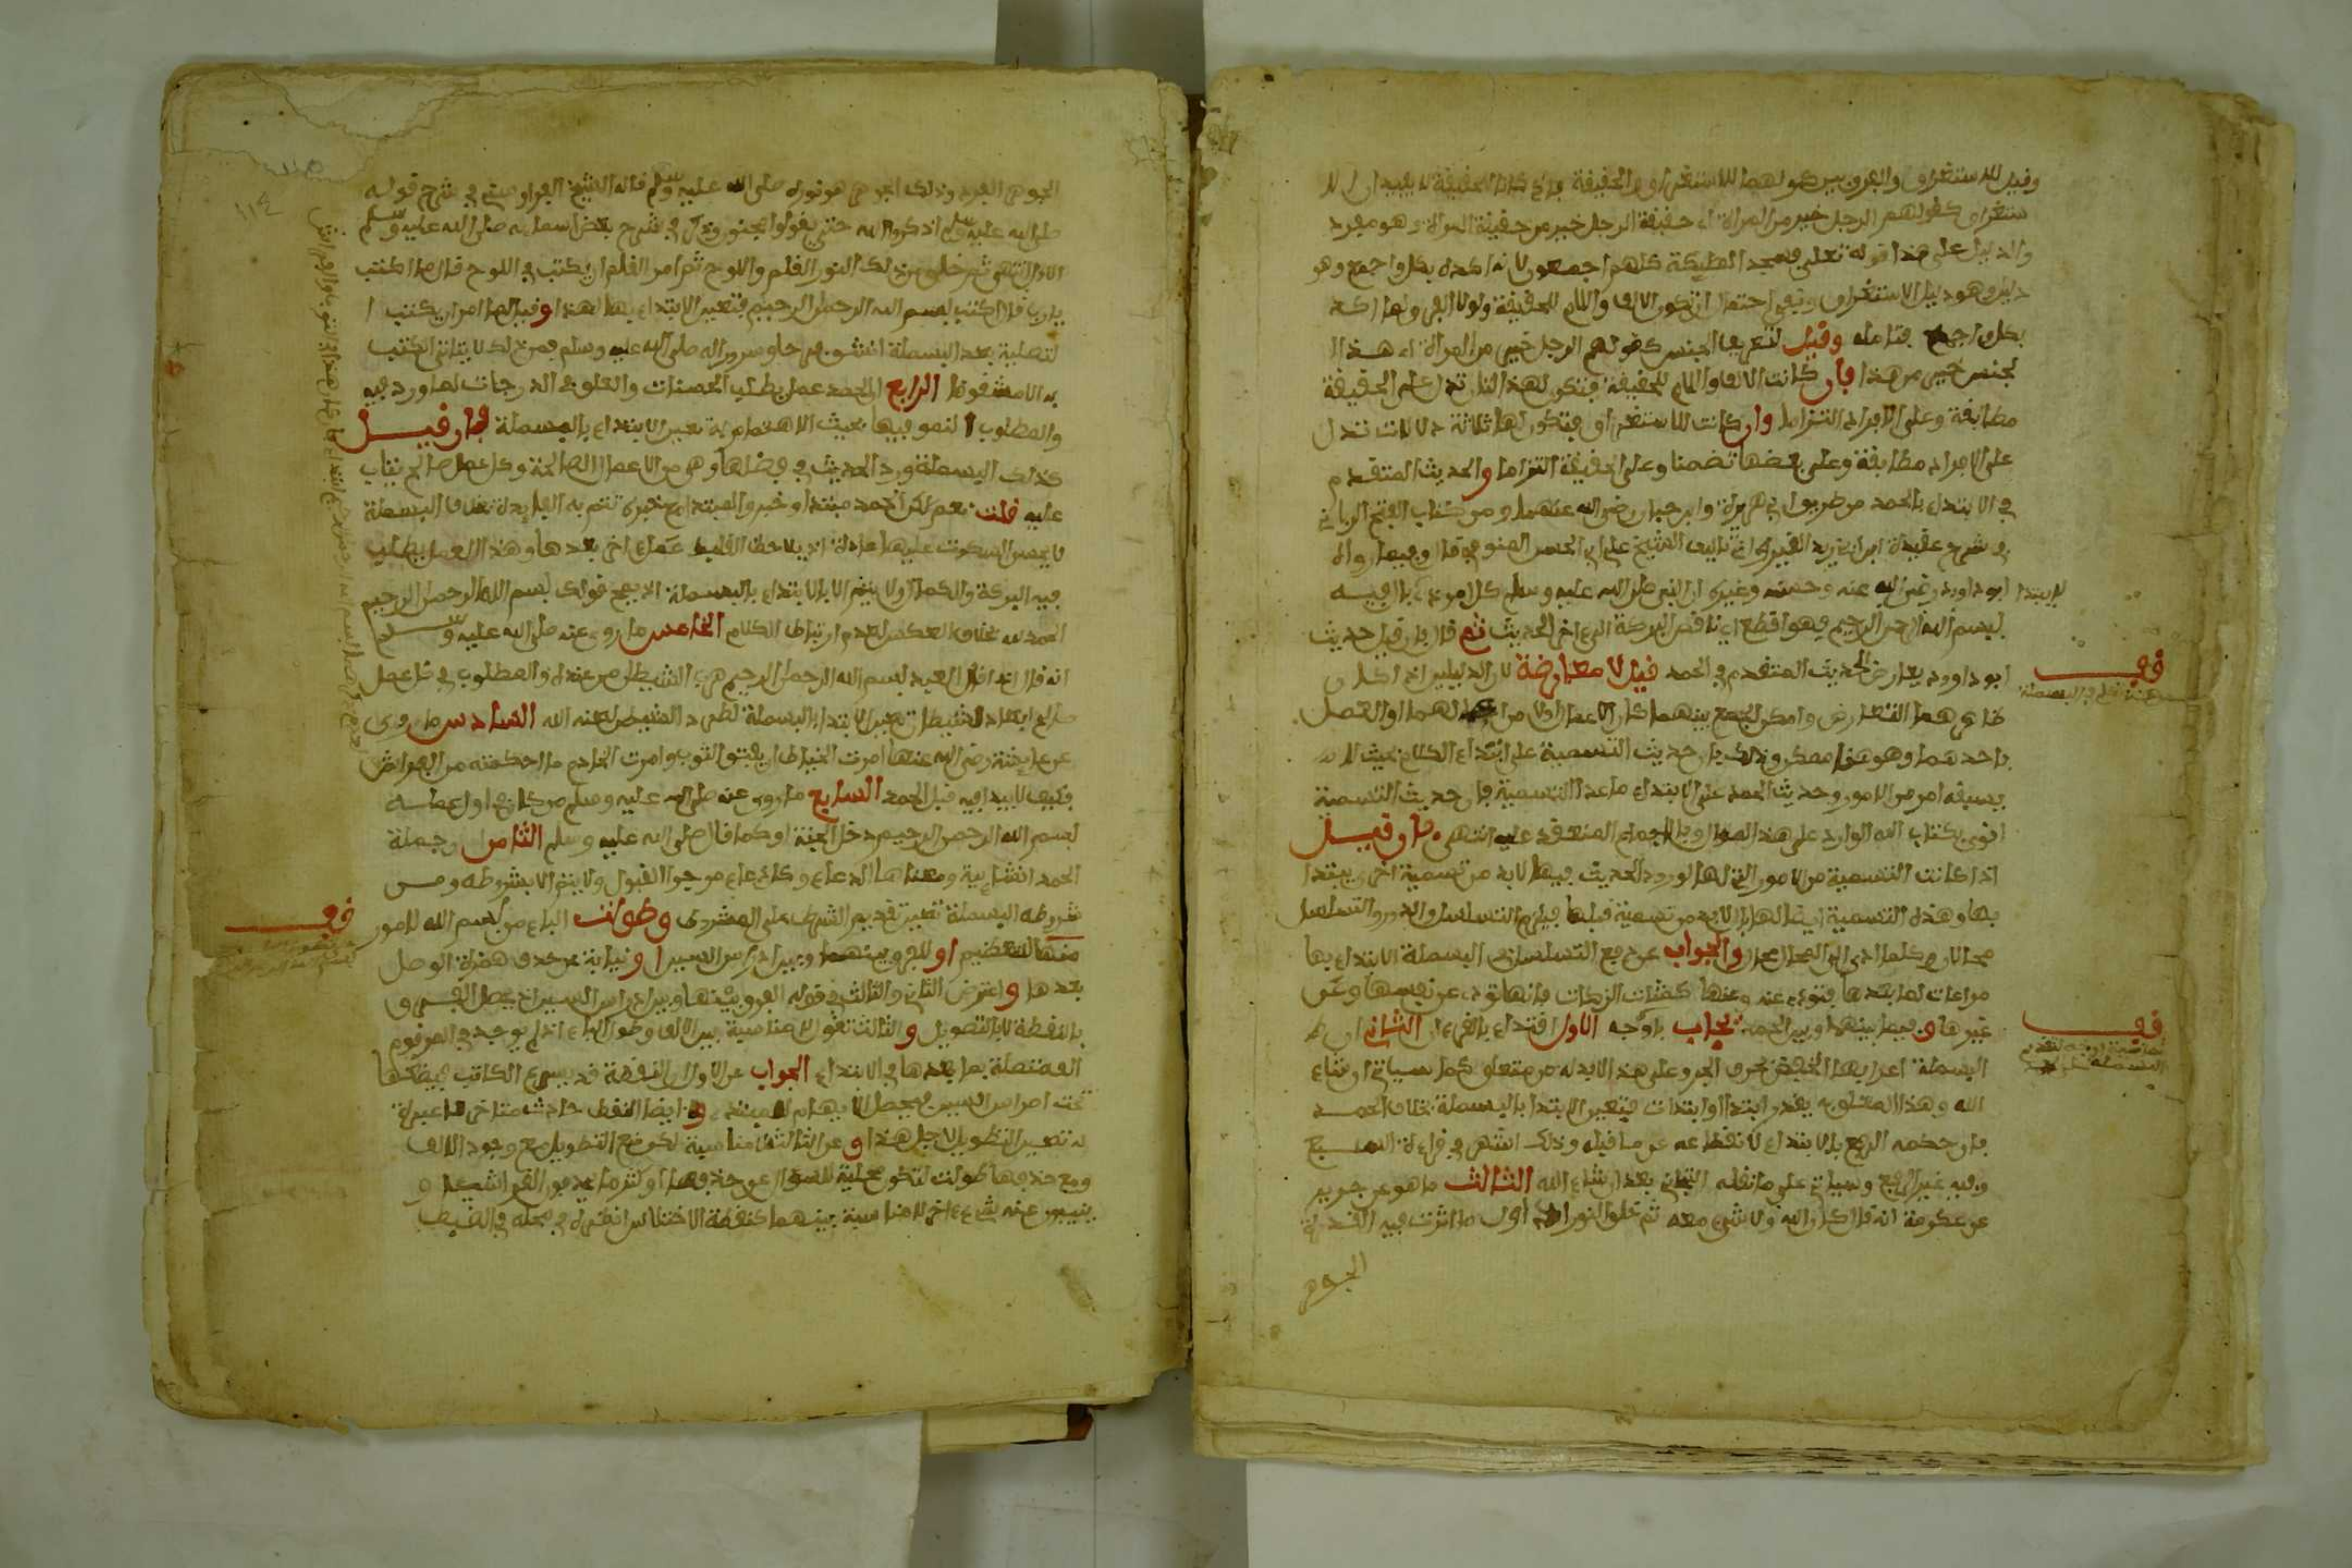 وقيل للاستغراق والفرق بين كونهما للاستغراق و الحقيقة فإن كانا للحقيقة لا يفيدان الا
ستغراق كقولهم الرجل خير من المراة اء حقيقة الرجل خير من حقيقة المراة وهو مفرد
والدليل على هذا قوله تعلى فسجد المليكة كلهم اجمعون لانه اكده بكل واجمع وهو
دليل وهو دليل الاستغراق ونفي احتمال ان تكون الالف واللام للحقيقة ولولا العرف لما اكد
بكل واجمع فتامله وقيل لتعريف الجنس كقولهم الرجل خير من المراة اء هذا ا
لجنس خير من هذا فإن كانت الالف واللام للحقيقة فتكون لها دلالتان تدل على الحقيقة
مطابقة وعلى الافراد التزاما وان كانت للاستغراق فتكون لها ثلاثة دلالات تدل
على الافراد مطابقة وعلى بعضها تضمنا وعلى الحقيقة التزاما والحديث المتقدم
في الابتداء بالحمد من طريق ابي هريرة وابن حبان رضي الله عنهما ومن كتاب الفتح الرباني
في شرح عقيدة ابن ابي زيد القيرواني تاليف الشيخ علي ابي الحسن المنوفي قال وفيما رواه
ابو داود رضي الله عنه وحسنه وغيره ان النبي صلى الله عليه وسلم كل امر ذي بال لا يبتدا فيه
لا يبتدا
ببسم الله الرحمن الرحيم فهو اقطع اي ناقص البركة الى اخر الحديث ثم قال فإن قيل حديث
ابو داوود يعارض الحديث المتقدم في الحمد قيل لا معارضة لان الدليلين اذا كان
قف
ظاهرهما التعارض وامكن الجمع بينهما كان الاعمال اولا من لهما او العمل
باحدهما وهو هنا ممكن وذلك بان حديث التسمية على ابتداء الكلام بحيث لا
يسبقه امر من الامور وحديث الحمد على الابتداء ما عدا التسمية فإن حديث التسمية
اقوى بكتاب الله الوارد على هذا المنوال وبالاجماع المنعقد عليه انتهى فإن قيل
اذا كانت التسمية من الامور التي لها لورود الحديث فيها لابد من تسمية اخرى يبتدا
بها وهذه التسمية ايضا لها بال لابد من تسمية قبلها فيلزم التسلسل والدور والتسلسل
محال وكلما ادى الى المحال محال والجواب عن دفع التسلسل ان البسملة الابتداء بها
مراعات لما بعدها فتؤدي عنه وعنها كشات الزكات فإنها تؤدي عن نفسها وعن
غيرها و فيما بينها وبين الحمد يجاب باوجه الاول اقتداء بالقرءان الثاني ان
قف
البسملة اعرابها الخفض بحرف الجر وعلى هذا لابد له من متعلق كما سياتي ان شاء
الله وهذا المتعلق به يقدر ابتدا او ابتدات فيتعين الابتدا بالبسملة بخلاف الحمد
فإن حكمه الرفع بالابتداء لانقطاعه عن ما قبله وذلك انتهى في قراءة السبع
وفيه غير الرفع وسياتي على ما نقله الثاني بعد ان شاء الله الثالث ما هو عن جويبر
عن عكرمة انه قال كان الله ولا شيء معه ثم خلق النور اول ما اثرت فيه القدرة
الجوهر
١١٤
الجوهر الفرد وذلك الجوهر هو نوره صلى الله عليه وسلم قاله الشيخ في شرح قوله
صلى الله عليه وسلم اذكروا الله حتى يقولوا مجنون وقال في شرح بعض اسمايه صلى الله عليه وسلم
الاول انتهى ثم خلق من ذلك النور القلم واللوح ثم امر القلم ان يكتب في اللوح قال ما اكتب
يا رب قال اكتب بسم الله الرحمن الرحيم فتعين الابتداء بها لهذا وقيل لما امر ان يكتب ا
لتصلية بعد البسملة انشق من حلو سرور اله صلى الله عليه وسلم فمن ذلك لا يتاتى الكتب
به الا مشقوقا الرابع الحمد عمل يطلب الحسنات والعلو في الدرجات لما ورد فيه
والمطلوب النمو فيها بحيث الاهتمام به تعين الابتداء بالبسملة فإن قيل
كذلك البسملة ورد الحديث في فضلها وهي من الاعمال الصالحة وكل عمل صالح يثاب
عليه قلت نعم لكن الحمد مبتدا وخبر والمبتدا مع خبره تتم به الفايدة بخلاف البسملة
لا يحسن السكوت عليها عادة اذ يلاحظ القلب عملا اخر بعدها وهذا العمل يطلب
فيه البركة والكمال ولا يتم الا بالابتداء بالبسملة اذ يصح قولك بسم الله الرحمن الرحيم
الحمد لله بخلاف العكس لعدم ارتباط الكلام الخامس ما روي عنه صلى الله عليه وسلم
انه قال اذا قال العبد بسم الله الرحمن الرحيم هرب الشيطان من عنده والمطلوب في كل عمل
صالح ابعاد الشيطان تعين الابتداء بالبسملة لطرد الشيطان لعنه الله السادس ما روي
عن عايشة رضي الله عنها امرت الخياط ان يفتق الثوب وامرت الخادم ما احكمته من
فكيف لا يبدا فيه قبل الحمد السابع ما روي عنه صلى الله عليه وسلم من كان في اول عمله
بسم الله الرحمن الرحيم دخل الجنة او كما قال صلى الله عليه وسلم الثامن وجملة
الحمد انشايية ومعناها الدعاء وكل دعاء مرجو القبول ولا يتم الا بشروطه ومن
شروطه البسملة تعين تقديم الشرط على المشروط وطولت الباء من بسم الله لامور
قف
منها للتعظيم او للفرق بينهما وبين ادراس السين او نيابة عن حذف همزة الوصل
بعدها واعترض الثاني والثالث في قوله الفرق بينها وبين ادراس السين اذ يحصل الفرق
بالنقطة لا بالتطويل والثالث تقول لا مناسبة بين الالف وطول الباء اذ لم يوجد في المرقوم
المتصلة بما بعدها في الابتداء الجواب عن الاول ان النقطة قد يسرع الكاتب فيضعها
تحت اضراس السين فيحصل الايهام للمبتدي و ايضا النقط حادث متاخر فلا عبرة
به تعين التطويل لاجل هذا و عن الثالث مناسبة لكن مع التطويل مع وجود الالف
ومع حذفها طولت لتكون محلية للسؤال عن حذفها
ينبيون عنه بشيء ءاخر للمناسبة بينهما كنقطة الاختلاس في محله في الضبط